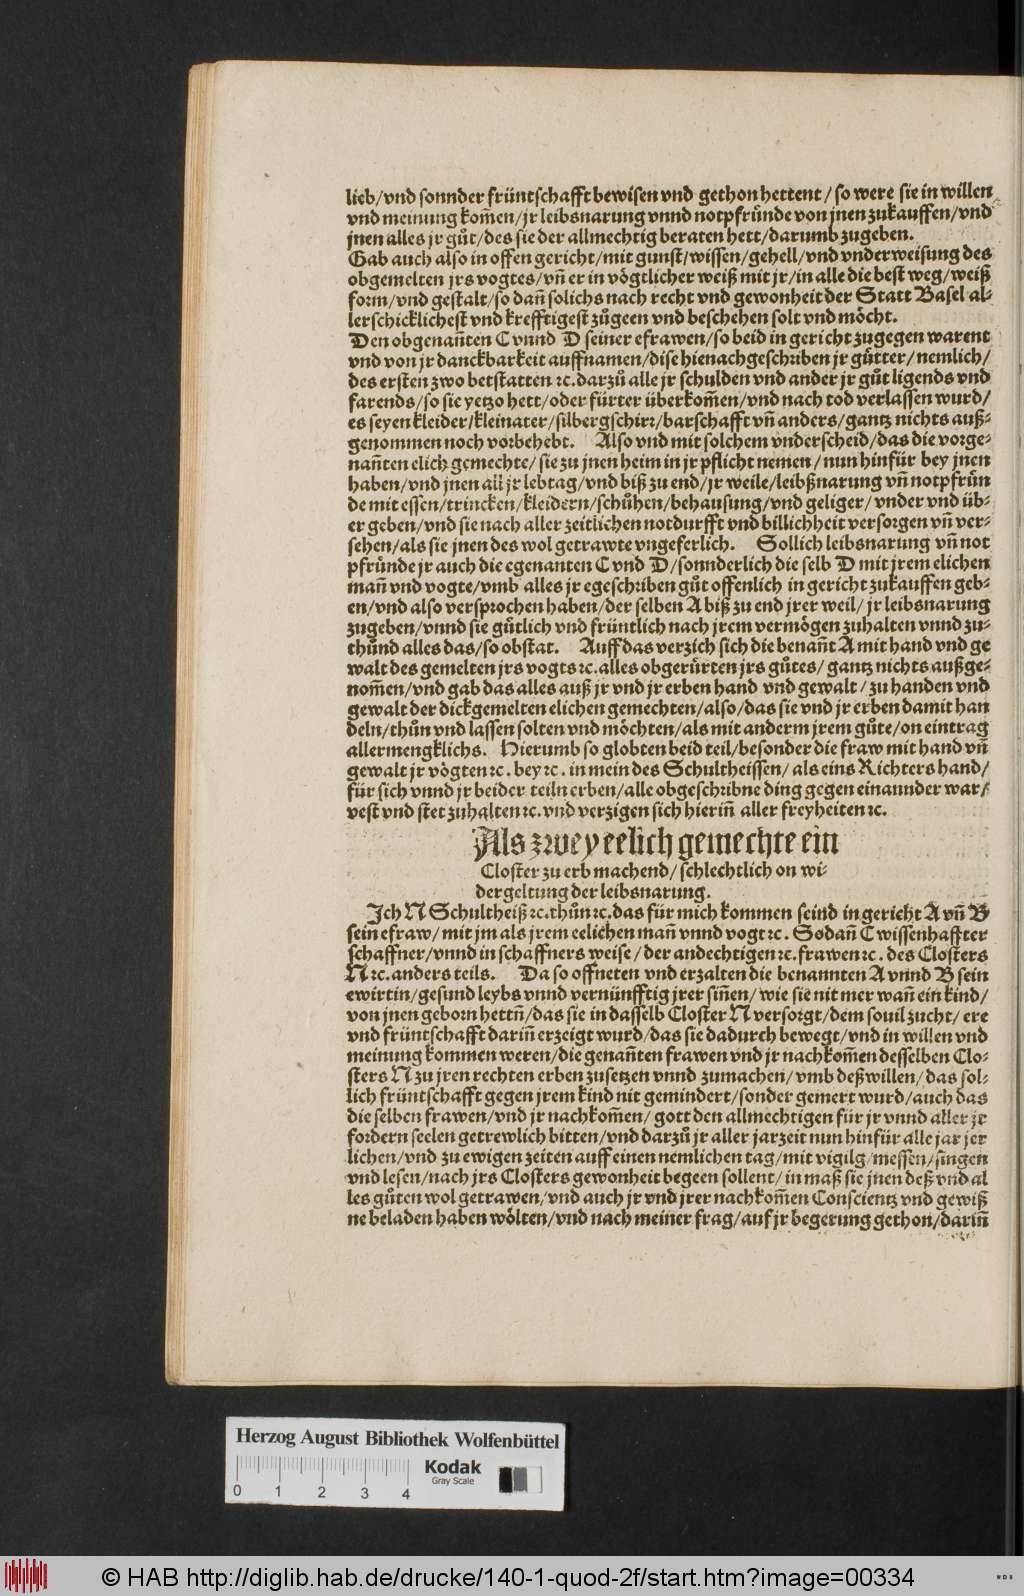 lieb/vnd sonnder früntschafft bewisen vnd gethon hettent/so were sie in willen
vnd meinung kom̃en/jr leibsnarung vnnd notpfrůnde von jnen zukauffen/vnd
jnen alles jr gůt/des sie der allmechtig beraten hett/darumb zugeben.
Gab auch also in offen gericht/mit gunst/wissen/gehell/vnd vnderweisung des
obgemelten jrs vogtes/vn̄ er in vögtlicher weiß mit jr/in alle die best weg/weiß
form/vnd gestalt/so dan̄ solichs nach recht vnd gewonheit der Statt Basel al-
lerschicklichest vnd krefftigest zůgeen vnd beschehen solt vnd möcht.
Den obgenan̄ten C vnnd D seiner efrawen/so beid in gericht zugegen warent
vnd von jr danckbarkeit auffnamen/dise hienachgeschriben jr gůtter/nemlich/
des ersten zwo betstatten ⁊c. darzů alle jr schulden vnd ander jr gůt ligends vnd
farends/so sie yetzo hett/oder fürter überkom̄en/vnd nach tod verlassen wurd/
es seyen kleider/kleinater/silbergschirr/barschafft vn̄ anders/gantz nichts auß-
genommen noch vorbehebt. Also vnd mit solchem vnderscheid/das die vorge-
nan̄ten elich gemechte/sie zu jnen heim in jr pflicht nemen/nun hinfür bey jnen
haben/vnd jnen all jr lebtag/vnd biß zu end/jr weile/leibßnarung vn̄ notpfrůn
de mit essen/trincken/kleidern/schůhen/behausung/vnd geliger/vnder vnd üb-
er geben/vnd sie nach aller zeitlichen notdurfft vnd billichheit versorgen vn̄ ver-
sehen/als sie jnen des wol getrawte vngeferlich. Sollich leibsnarung vn̄ not
pfrůnde jr auch die egenanten C vnd D/sonnderlich die selb D mit jrem elichen
man̄ vnd vogte/vmb alles jr egeschriben gůt offenlich in gericht zukauffen geb-
en/vnd also versprochen haben/der selben A biß zu end jrer weil/jr leibsnarung
zugeben/vnnd sie gůtlich vnd früntlich nach jrem vermögen zuhalten vnnd zu-
thůnd alles das/so obstat. Auff das verzich sich die benan̄t A mit hand vnd ge
walt des gemelten jrs vogts ⁊c. alles obgerürten jrs gůtes/gantz nichts außge-
nom̄en/vnd gab das alles auß jr vnd jr erben hand vnd gewalt/zu handen vnd
gewalt der dickgemelten elichen gemechten/also/das sie vnd jr erben damit han
deln/thůn vnd lassen solten vnd möchten/als mit anderm jrem gůte/on eintrag
allermengklichs. Hierumb so globten beid teil/besonder die fraw mit hand vn̄
gewalt jr vögten ⁊c. bey ⁊c. in mein des Schultheissen/als eins Richters hand/
für sich vnnd jr beider teiln erben/alle obgeschribne ding gegen einannder war/
vest vnd stet zuhalten ⁊c. vnd verzigen sich hierin̄ aller freyheiten ⁊c.
Als zwey eelich gemechte ein
Closter zu erb machend/schlechtlich on wi-
dergeltung der leibsnarung.
Jch N Schultheiß ⁊c. thůn ⁊c. das für mich kommen seind in gericht A vn̄ B
sein efraw/mit jm als jrem eelichen man̄ vnnd vogt ⁊c. Sodan̄ C wissenhaffter
schaffner/vnnd in schaffners weise/der andechtigen ⁊c. frawen ⁊c. des Closters
N ⁊c. anders teils. Da so offneten vnd erzalten die benannten A vnnd B sein
ewirtin/gesund leybs vnnd vernünfftig jrer sin̄en/wie sie nit mer wan̄ ein kind/
von jnen geborn hettn̄/das sie in dasselb Closter N versorgt/dem souil zucht/ere
vnd früntschafft darin̄ erzeigt wurd/das sie dadurch bewegt/vnd in willen vnd
meinung kommen weren/die genan̄ten frawen vnd jr nachkom̄en desselben Clo-
sters N zu jren rechten erben zusetzen vnnd zumachen/vmb deßwillen/das sol-
lich früntschafft gegen jrem kind nit gemindert/sonder gemert wurd/auch das
die selben frawen/vnd jr nachkom̄en/gott den allmechtigen für jr vnnd aller jr
fordern seelen getrewlich bitten/vnd darzů jr aller jarzeit nun hinfür alle jar jer
lichen/vnd zu ewigen zeiten auff einen nemlichen tag/mit vigilg/messen/singen
vnd lesen/nach jrs Closters gewonheit begeen sollent/in maß sie jnen deß vnd al
les gůten wol getrawen/vnd auch jr vnd jrer nachkom̄en Conscientz vnd gewiß
ne beladen haben wölten/vnd nach meiner frag/auf jr begerung gethon/darin̄
Herzog August Bibliothek Wolfenbüttel
Kodak
Gray Scale
0 1 2 3 4
© HAB http://diglib.hab.de/drucke/140-1-quod-2f/start.htm?image=00334